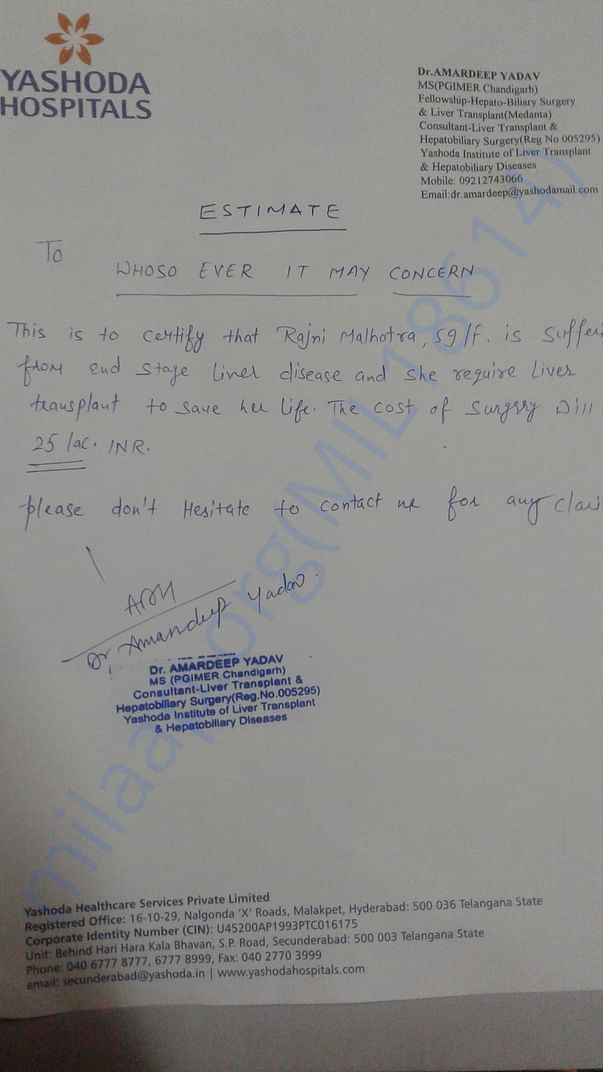 YASHODA
HOSPITALS
Dr.AMARDEEP YADAV
MS(PGIMER Chandigarh)
Fellowship-Hepato-Biliary Surgery
& Liver Transplant(Medanta)
Consultant-Liver Transplant &
Hepatobiliary Surgery(Reg No 005295)
Yashoda Institute of Liver Transplant
& Hepatobiliary Diseases
Mobile: 09212743066
Email:dr.amardeep@yashodamail.com
ESTIMATE
To
WHOSO EVER IT MAY CONCERN
This is to certify that Rajni Malhotra, 59/F. is Suffe
from end stage liver disease and she require Liver
transplant to save her life. The cost of Surgery Will
25 lac. INR.
please don't Hesitate to contact me for any clai
Dr. Amardeep Yadav.
Dr. AMARDEEP YADAV
MS (PGIMER Chandigarh)
Consultant-Liver Transplant &
Hepatobiliary Surgery(Reg.No.005295)
Yashoda Institute of Liver Transplant
& Hepatobiliary Diseases
milaap.org(MIL18614)
Yashoda Healthcare Services Private Limited
Registered Office: 16-10-29, Nalgonda 'X' Roads, Malakpet, Hyderabad: 500 036 Telangana State
Corporate Identity Number (CIN): U45200AP1993PTC016175
Unit: Behind Hari Hara Kala Bhavan, S.P. Road, Secunderabad: 500 003 Telangana State
Phone: 040 6777 8777, 6777 8999, Fax: 040 2770 3999
email: secunderabad@yashoda.in | www.yashodahospitals.com